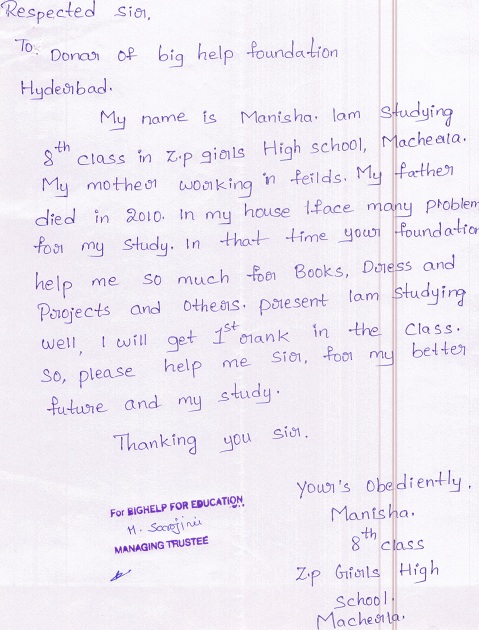 Respected Sir.
To: Donar of big help foundation
Hyderbad.
My name is Manisha. Iam Studying
8th class in Z.p girls High school, Macherla.
My mother working in feilds. My father
died in 2010. In my house Iface many problem
for my study. In that time your foundation
help me so much for Books, Dress and
Projects and others. present Iam Studying
well, I will get 1st rank in the class.
So, please help me Sir, for my better
future and my study.
Thanking you sir.
Your's obediently.
Manisha.
8th class
Z.p Girls High
School.
Macherla.
For BIGHELP FOR EDUCATION
M. Sarojini
MANAGING TRUSTEE